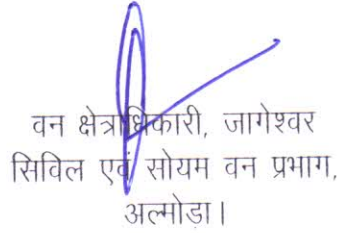 वन क्षेत्राधिकारी, जागेश्वर
सिविल एवं सोयम वन प्रभाग,
अल्मोड़ा।